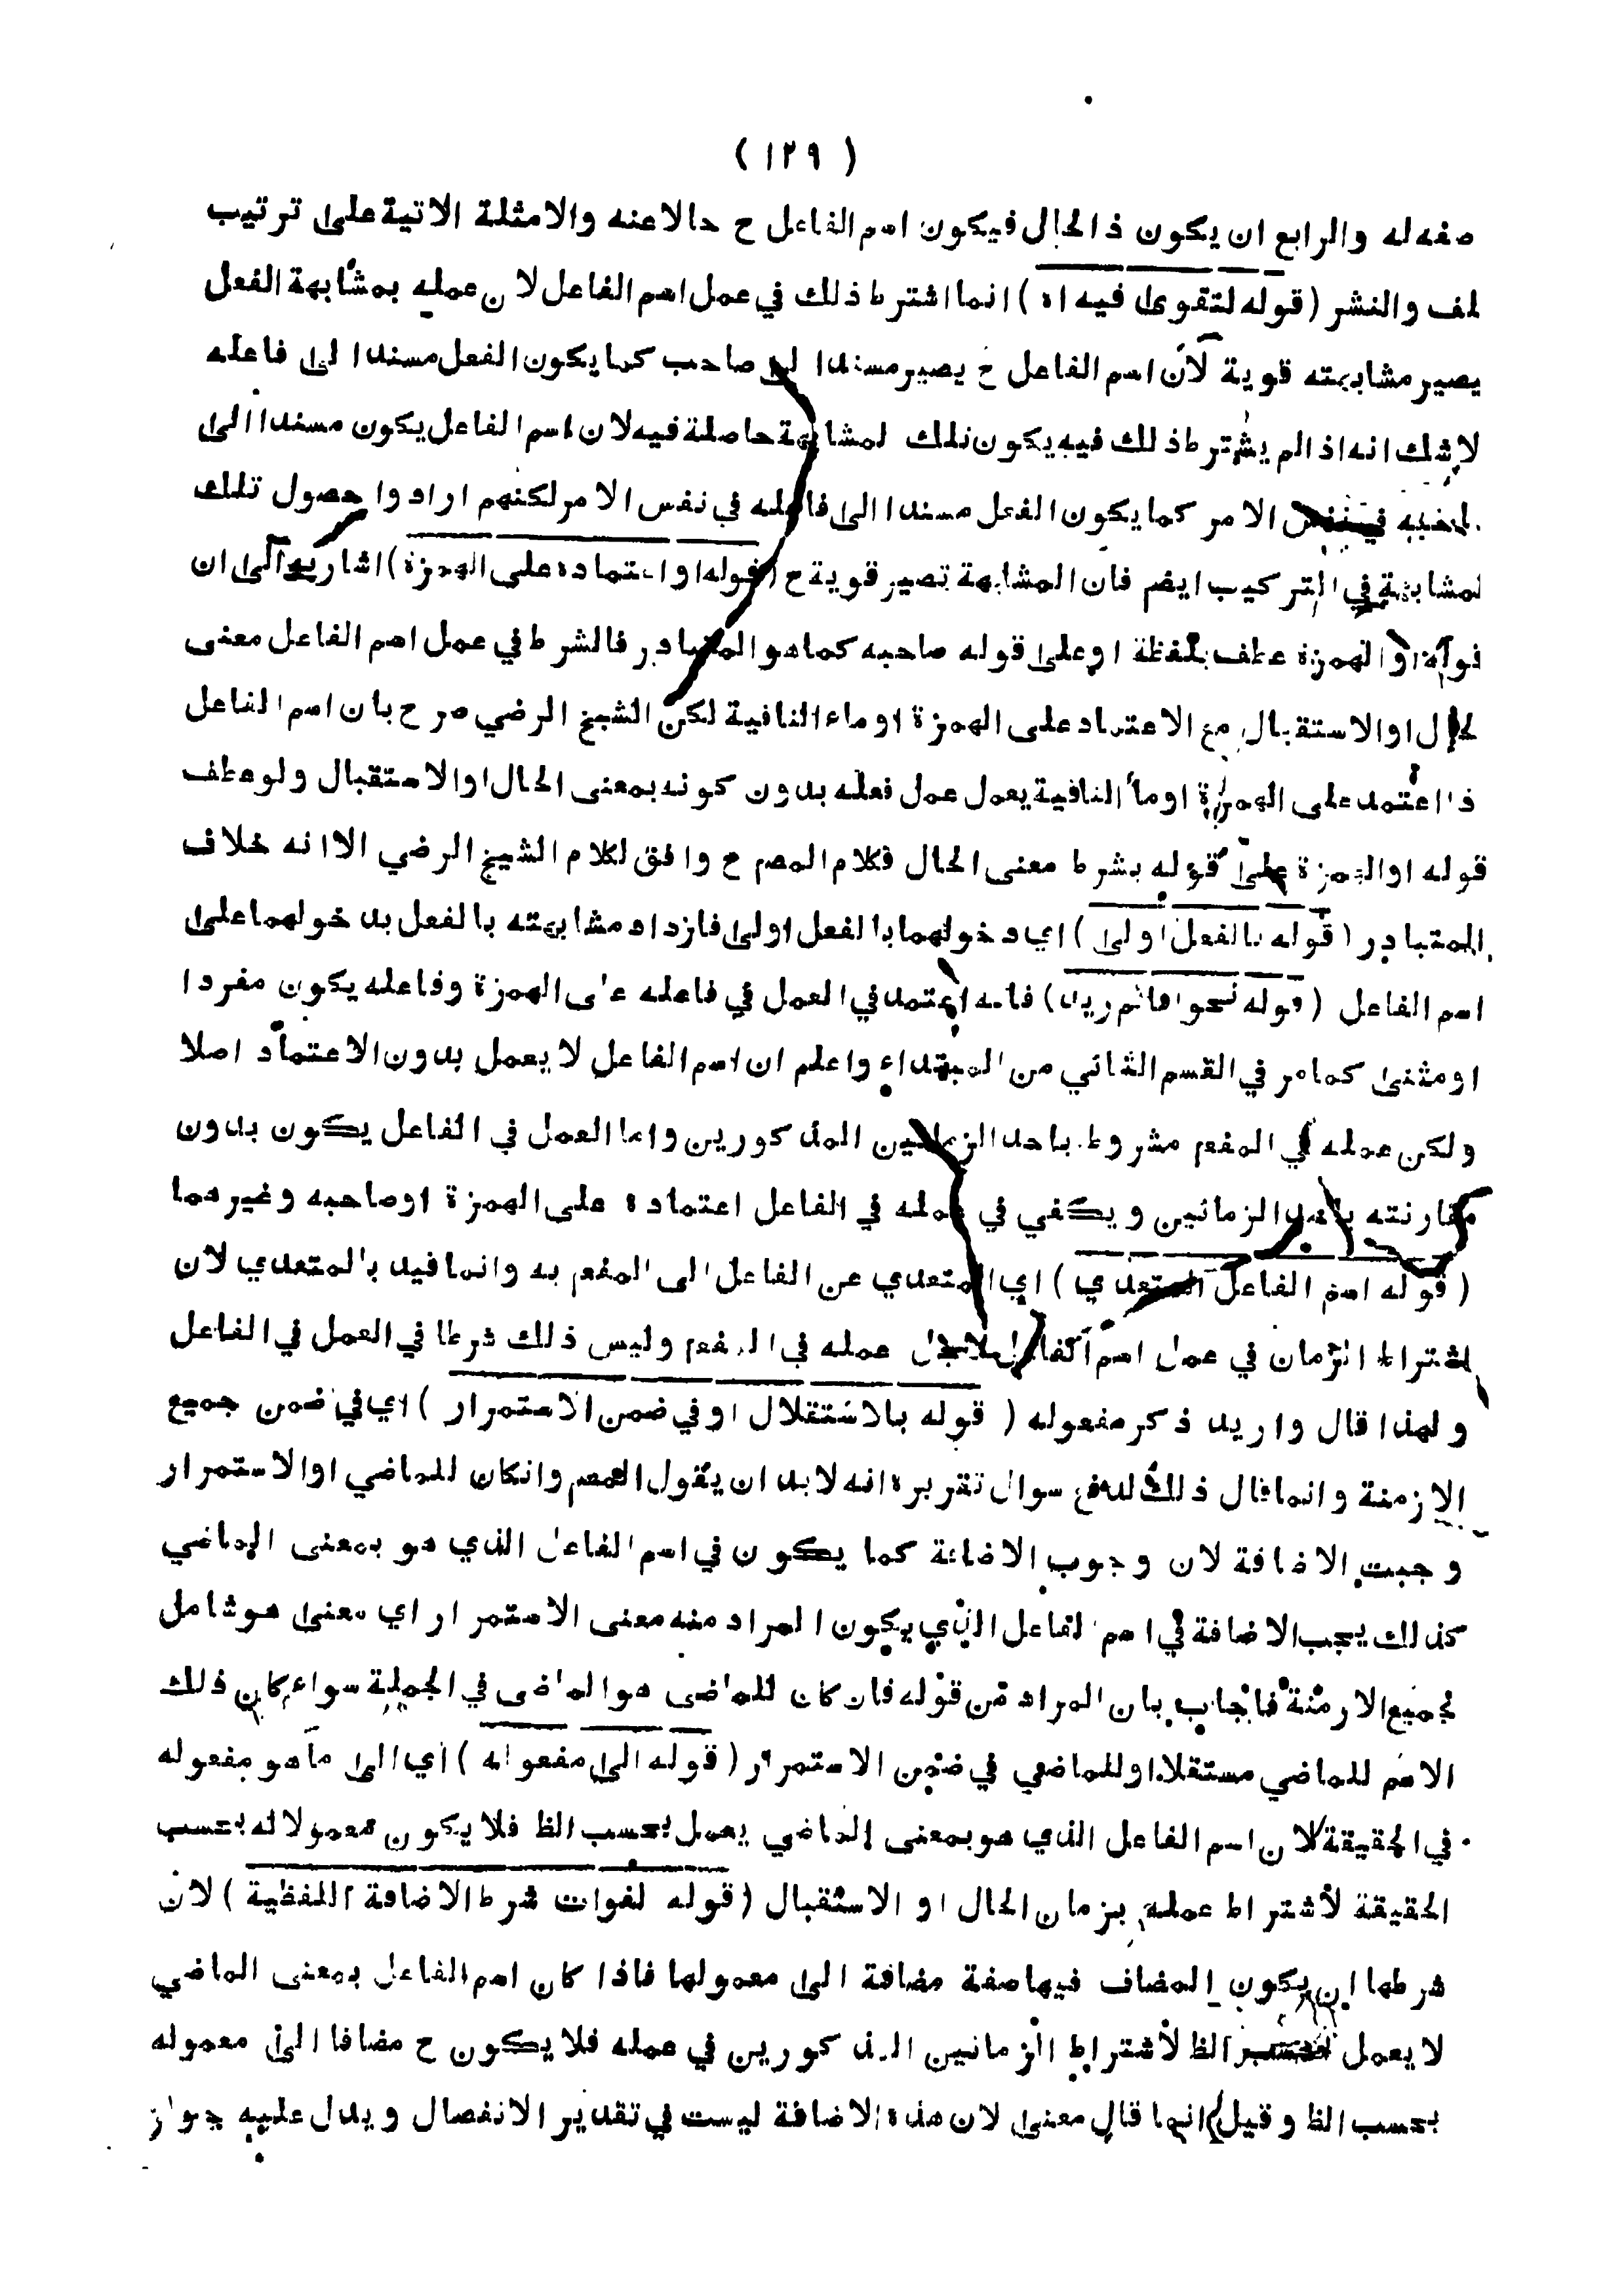 ( ١٢٩ )
صفة له والرابع ان يكون ذا لحال فيكون اسم الفاعل ح حالا عنه والامثلة الاتية على ترتيب
لف والنشر (قوله لتقوى فيه اه) انما اشترط ذلك في عمل اسم الفاعل لان عمله بمشابهة الفعل
يصير مشابهته قوية لان اسم الفاعل ح يصير مسندا الى صاحب كما يكون الفعل مسندا الى فاعله
لا شك انه اذا لم يشترط ذلك فيه يكون تلك لمشابهة حاصلة فيه لان اسم الفاعل يكون مسندا الى
في نفس الامر كما يكون الفعل مسندا الى فاعله في نفس الامر لكنهم ارادوا حصول تلك
لمشابهة في التركيب ايضم فان المشابهة تصير قوية ح (قوله او اعتماده على الهمزة) اشار به الى ان
قوله او الهمزة عطف بلفظة او على قوله صاحبه كما هو المتبادر فالشرط في عمل اسم الفاعل معنى
لحال او الاستقبال مع الاعتماد على الهمزة او ماء النافية لكن الشيخ الرضي صرح بان اسم الفاعل
ذا اعتمد على الهمزة او ما النافية يعمل عمل فعله بدون كونه بمعنى الحال او الاستقبال ولو عطف
قوله او الهمزة على قوله بشرط معنى الحال فكلام المصم ح وافق لكلام الشيخ الرضي الا انه خلاف
المتبادر (قوله بالفعل اولى) اي دخولهما بالفعل اولى فازداد مشابهته بالفعل بدخولهما على
اسم الفاعل (قوله نحو اقائم زيد) فانه اعتمد في العمل في فاعله على الهمزة وفاعله يكون مفردا
او مثنى كما مر في القسم الثاني من المبتداء واعلم ان اسم الفاعل لا يعمل بدون الاعتماد اصلا
ولكن عمله في المفعم مشروط باحد الزمانين المذكورين واما العمل في الفاعل يكون بدون
مقارنته باحد الزمانين ويكفي في عمله في الفاعل اعتماده على الهمزة او صاحبه وغيرهما
(قوله اسم الفاعل المتعدي) اي المتعدي عن الفاعل الى المفعم به وانما قيد بالمتعدي لان
اشتراط الزمان في عمل اسم الفاعل لاجل عمله في المفعم وليس ذلك شرطا في العمل في الفاعل
ولهذا قال واريد ذكر مفعوله (قوله بالاستقلال او في ضمن الاستمرار) اي في ضمن جميع
الازمنة وانما قال ذلك لدفع سوال تقريره انه لابد ان يقول المصم وان كان للماضي او الاستمرار
وجبت الاضافة لان وجوب الاضافة كما يكون في اسم الفاعل الذي هو بمعنى الماضي
كذلك يجب الاضافة في اسم لفاعل الذي يكون المراد منه معنى الاستمرار اي معنى هو شامل
لجميع الازمنة فاجاب بان المراد من قوله فان كان للماضى هو الماضى في الجملة سواء كان ذلك
الاسم للماضي مستقلا او للماضي في ضمن الاستمرار (قوله الى مفعوله) اي الى ما هو مفعوله
في الحقيقة لان اسم الفاعل الذي هو بمعنى الماضي يعمل بحسب الظ فلا يكون معمولا له بحسب
الحقيقة لاشتراط عمله بزمان الحال او الاستقبال (قوله لفوات شرط الاضافة اللفظية) لان
شرطها ان يكون المضاف فيها صفة مضافة الى معمولها فاذا كان اسم الفاعل بمعنى الماضي
لا يعمل بحسب الظ لاشتراط الزمانين المذكورين في عمله فلا يكون ح مضافا الى معموله
بحسب الظ وقيل انما قال معنى لان هذه الاضافة ليست في تقدير الانفصال ويدل عليه جواز